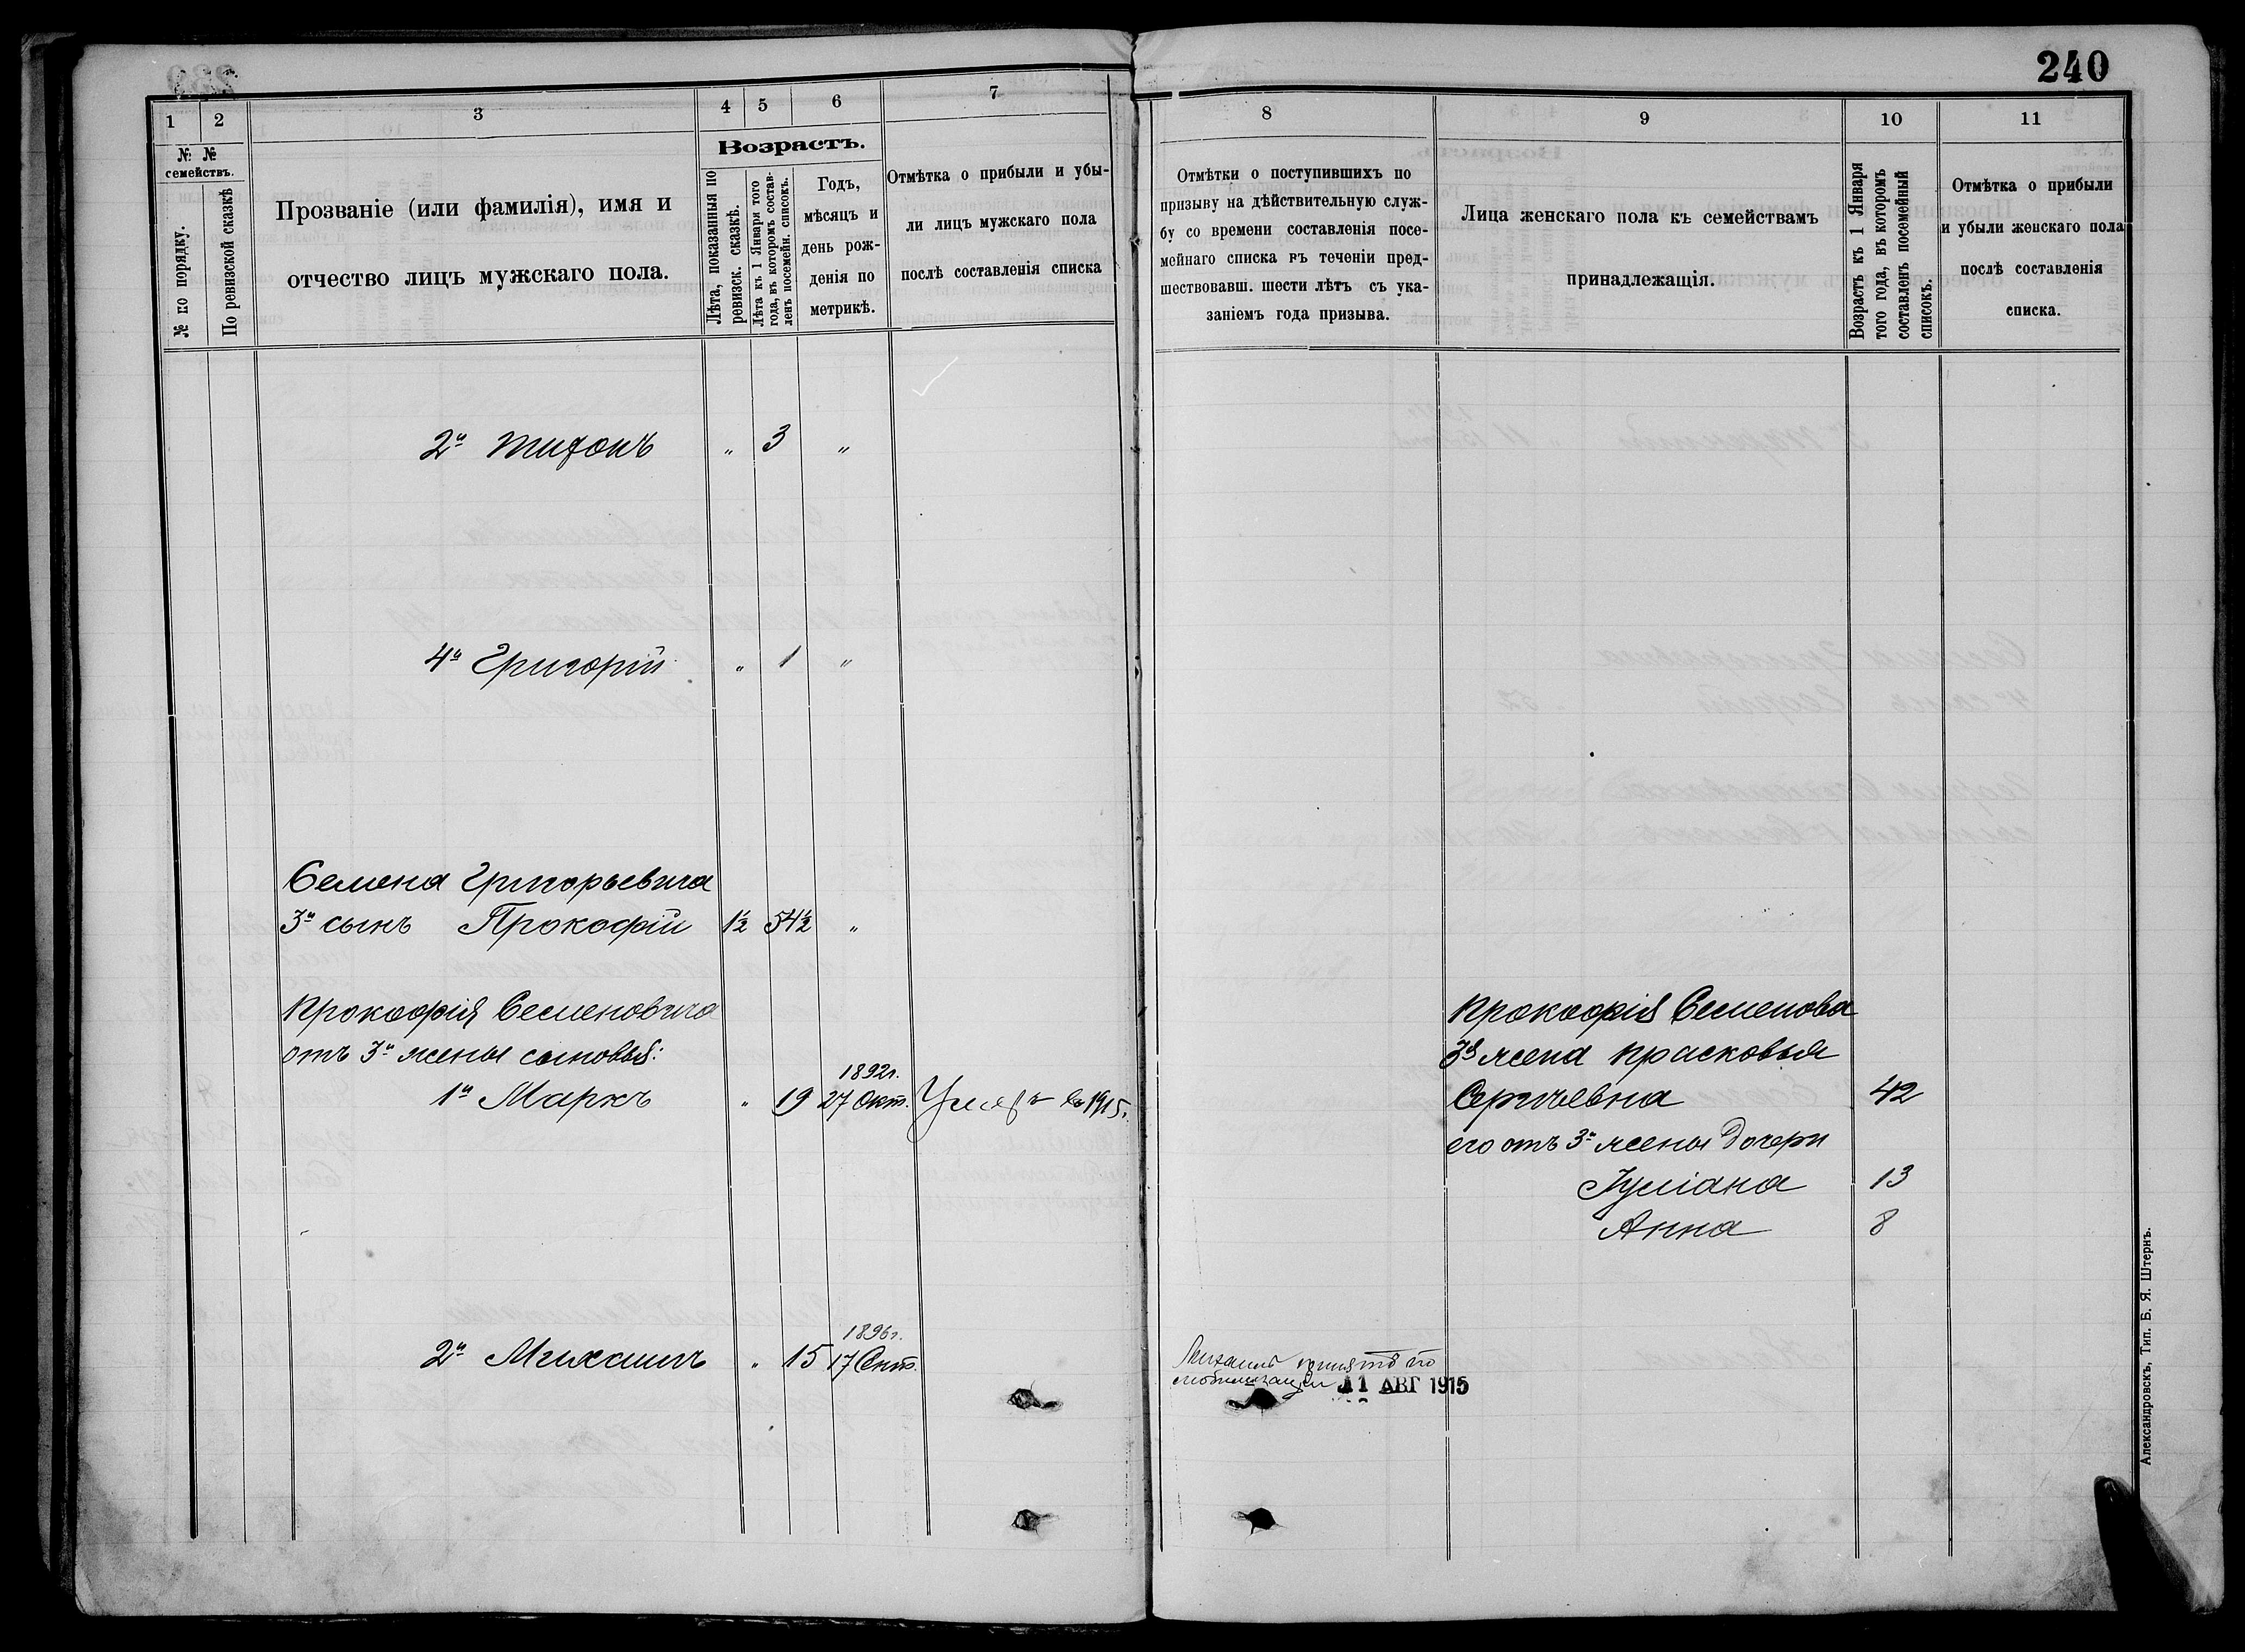 240
1 2 3 4 5 6 7
№ № семействъ.
№ по порядку.
По ревизской сказкѣ
Прозваніе (или фамилія), имя и
отчество лицъ мужскаго пола.
Возрастъ.
Лѣта, показанныя по
ревизск. сказкѣ.
Лѣта къ 1 Января того
года, въ которомъ состав-
ленъ посемейн. списокъ.
Годъ,
мѣсяцъ и
день рож-
денія по
метрикѣ.
Отмѣтка о прибыли и убы-
ли лицъ мужскаго пола
послѣ составленія списка
2й Тихонъ " 3 "
4й Григорій " 1 "
Семена Григорьевича
3й сынъ Прокофій 1½ 54½ "
Прокофія Семеновича
отъ 3й жены сыновья:
1й Маркъ " 19 1892г. 27 Окт. Умеръ в 1915г.
2й Михаилъ " 15 1896г. 17 Сент.
8 9 10 11
Отмѣтки о поступившихъ по
призыву на дѣйствительную служ-
бу со времени составленія посе-
мейнаго списка въ теченіи пред-
шествовавш. шести лѣтъ съ ука-
заніемъ года призыва.
Лица женскаго пола къ семействамъ
принадлежащія.
Возрастъ къ 1 Января
того года, въ которомъ
составленъ посемейный
списокъ.
Отмѣтка о прибыли
и убыли женскаго пола
послѣ составленія
списка.
Прокофія Семенова
3я жена Прасковья
Сергѣевна 42
его отъ 3й жены дочери
Іуліана 13
Анна 8
Михаилъ принятъ по
мобилизаціи 11 АВГ 1915
Александровскъ, Тип. Б. Я. Штернъ.